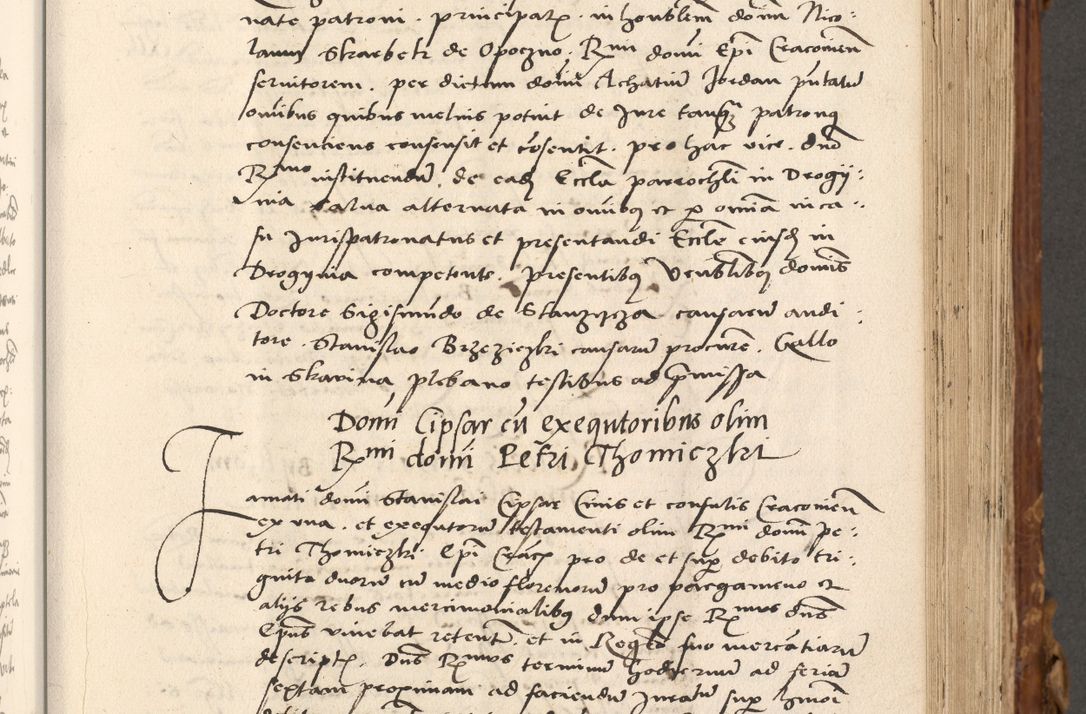 nate patroni . principalr in honblem domi Nico:
laum Skarbek de Opoczno . Rmi domi Epi Cracovien
servitorem . per dictum domi Achatiu Jordan putatu
omibus quibus melius potuit de Jure tanqz patronq
consentiens consensit et cosentit . pro hac vice . duo
Rmo instituendu . de eadz Eccla parrochli in Drogy:
nia salva alternata in omibq et p omia in ca:
su Jurispatronatus et presentandi Eccle eiusdz in
Drogynia competente . presentibq Venblibq domis
Doctore Sigismundo de Stanzycza causaru audi:
tore . Stanislao Brzezieczki causaru procure . Gallo
in Skavina plebano testibus ad pmissa
Domi Cipsar cu exequtoribus olim
Rmi domi Petri Thomiczki
Famati domi Stanislai Cipsar Civis et consulis Cracovien
ex una . et exequtoru testamenti olim Rmi domi Pe:
tri Thomiczki Epi Crac pro de et sup debito tri:
ginta duoru cu medio florenoru pro pargameno et
alijs rebus mercimonialibq dum ipse Rmus dns
Epus vivebat retent . et in Regro suo mercatiaru
descript . Dns Rmus terminu hodiernu ad feria
septam proximam ad faciendu Juratu sup hmoi